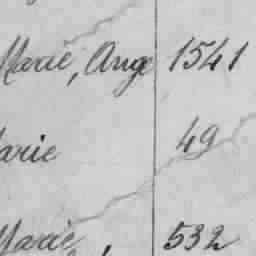 Marie, Ange 1541
arie 49
Marie, 532